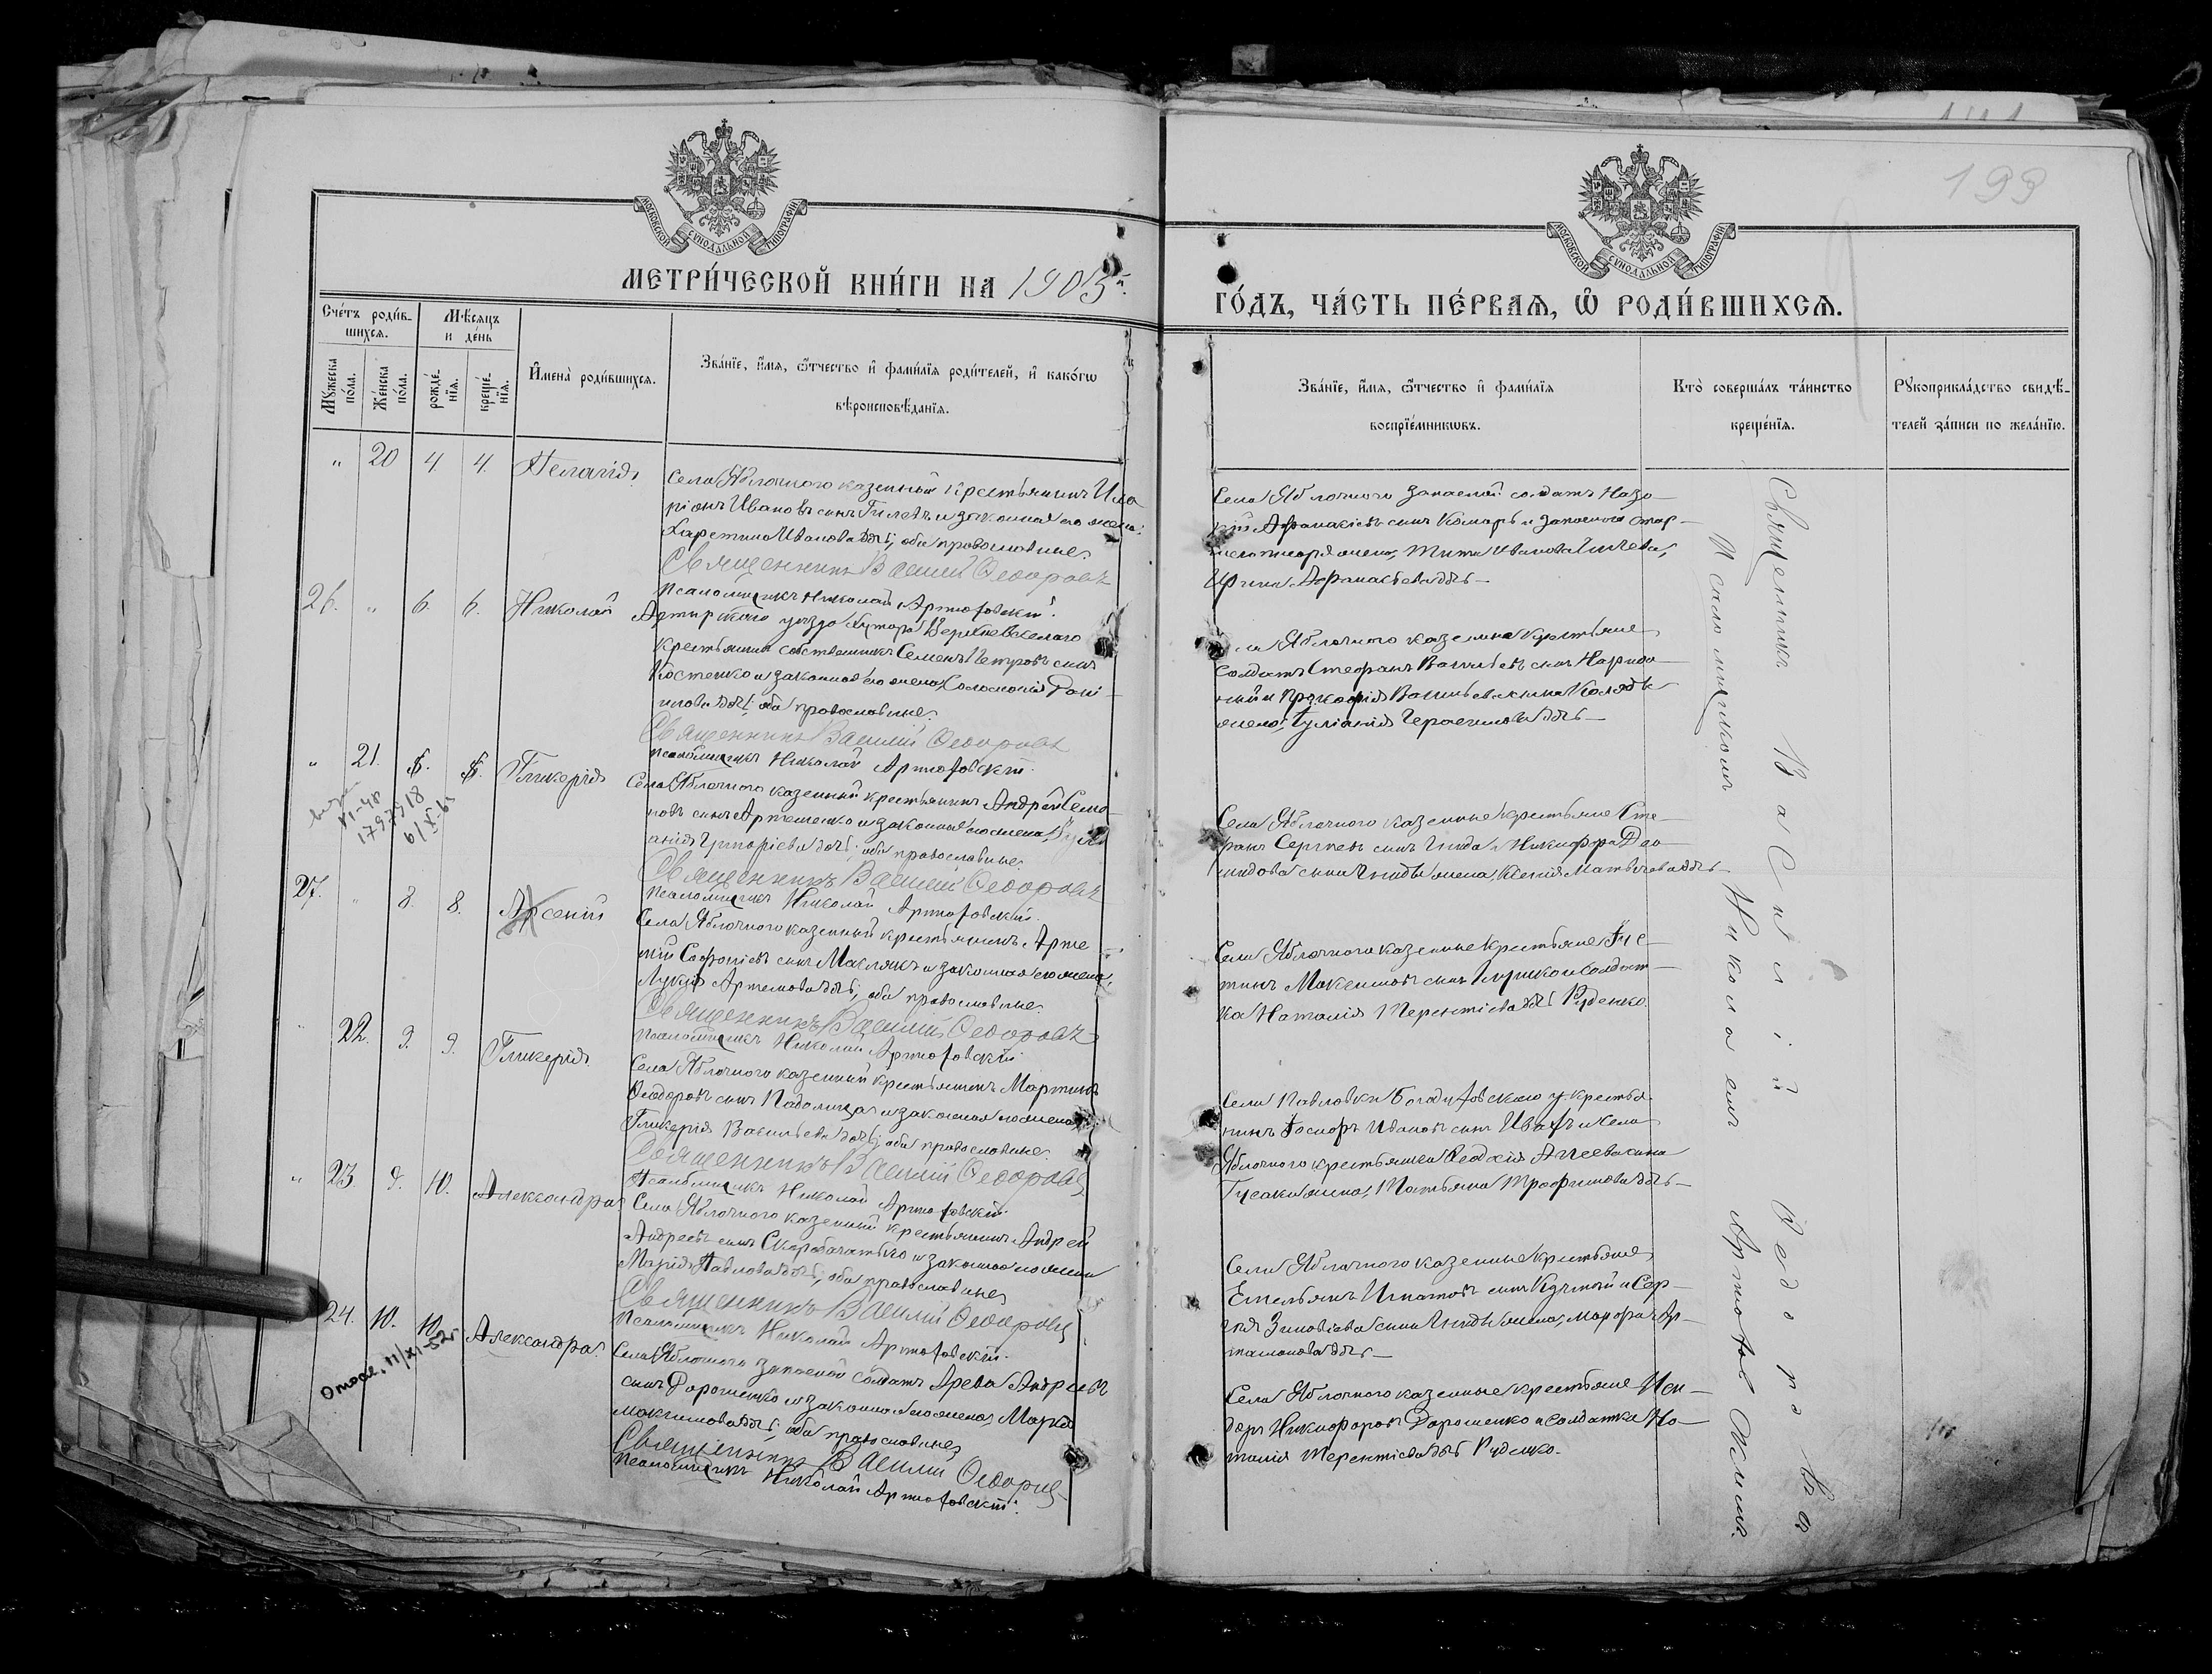 199
МОСКОВСКОЙ СѴНОДАЛЬНОЙ ТИПОГРАФІИ
МОСКОВСКОЙ СѴНОДАЛЬНОЙ ТИПОГРАФІИ
МЕТРИ́ЧЕСКОЙ КНИ́ГИ НА 1903й
ГО́ДЪ, ЧА́СТЬ ПЕ́РВАѦ, Ѡ҆ РОДИ́ВШИХСѦ.
Сче́тъ роди́в-
шихсѧ.
Мꙋ́жеска
по́ла.
Же́нска
по́ла.
Мѣ́сѧцъ
и де́нь
рожде́-
нїѧ.
креще́-
нїѧ.
И҆мена̀ роди́вшихсѧ.
Зва́нїе, и҆́мѧ, ѻ҆́тчество и҆ фами́лїѧ роди́телей, и҆ како́гѡ
вѣроисповѣ́данїѧ.
Зва́нїе, и҆́мѧ, ѻ҆́тчество и҆ фами́лїѧ
воспрїе́мникѡвъ.
Кто̀ соверша́лъ та́инство
креще́нїѧ.
Рꙋкоприкла́дство свидѣ́-
телей за́писи по жела́нїю.
" 20 4 4. Пелагія
Села Яблочного казенный крестьянинъ Ила
ріонъ Ивановъ сынъ Гилевъ и законная его жена
Харитина Иванова дочь; оба православные.
Священникъ Василій Ѳедоровъ
Псаломщикъ Николай Артюховскій.
Села Яблочного запасной солдатъ
сынъ Комарь и запасного стар-
жена, Иванова Гилева,
Ирина Афанасьева дочь
26. " 6. 6. Николай
Ахтырского уезда хутора
крестьянинъ собственникъ Семенъ Петровъ сынъ
Костенко и законная его жена Соломонія Дани-
лова дочь; оба православные.
Священникъ Василій Ѳедоровъ
Псаломщикъ Николай Артюховскій.
Яблочного казенные крестьяне
солдатъ Стефанъ Васильевъ сынъ
и Прокофія Васильева сына
жена, Іуліанія Герасимова дочь
" 21. 8. 8. Гликерія
VI-48
179718
6/X-63
Села Яблочного казенный крестьянинъ Андрей Семе
новъ сынъ Артеменко и законная его жена
Григоріева дочь; оба православные.
Священникъ Василій Ѳедоровъ
Псаломщикъ Николай Артюховскій.
Села Яблочного казенные крестьяне Сте-
фанъ Сергеевъ сынъ Гнида и Никифора Дав-
идова сына Гниды жена, Ксенія Матвѣева дочь
27. " 8. 8. Арсеній
Села Яблочного казенный крестьянинъ Арте
мій Софоніевъ сынъ Маклякъ и законная его жена,
Лукія Артемова дочь; оба православные.
Священникъ Василій Ѳедоровъ
Псаломщикъ Николай Артюховскій
Села Яблочного казенные крестьяне Іус-
тинъ Максимовъ сынъ и солдат-
ка Наталія Терентіева дочь Руденко
" 22. 9. 9. Гликерія.
Села Яблочного казенный крестьянинъ Мартинъ
Ѳеодоровъ сынъ Падолица и законная его жена
Гликерія Васильева дочь; оба православные.
Священникъ Василій Ѳедоровъ
Псаломщикъ Николай Артюховскій.
Села Павловки Богодуховского у. крестья-
нинъ Іосифъ Ивановъ сынъ Ивахъ и села
Яблочного крестьянина
Гусака жена, Татьяна Трофимова дочь
" 23. 9. 10. Александра
Села Яблочного казенный крестьянинъ Андрей
Андреевъ сынъ Скоробагатько и законная его жена
Марія Павлова дочь; оба православные
Священникъ Василій Ѳедоровъ
Псаломщикъ Николай Артюховскій.
Села Яблочного казенные крестьяне
Емельянъ Игнатовъ сынъ и Сер-
гія Зиновіева сына Гниды жена, Марфа Ар-
тамонова дочь
24. 10. 10. Александра.
11/XI-52г
Села Яблочного запасной солдатъ Андреевъ
сынъ Дорошенко и законная его жена, Марія
Максимова дочь; оба православные
Священникъ Василій Ѳедоровъ
Псаломщикъ Николай Артюховскій.
Села Яблочного казенные крестьяне Иси-
доръ Никифоровъ Дорошенко и солдатка На-
талія Терентіева дочь Руденко.
Священникъ Василій Ѳедоровъ
Псаломщикомъ Николаемъ Артюховскимъ.